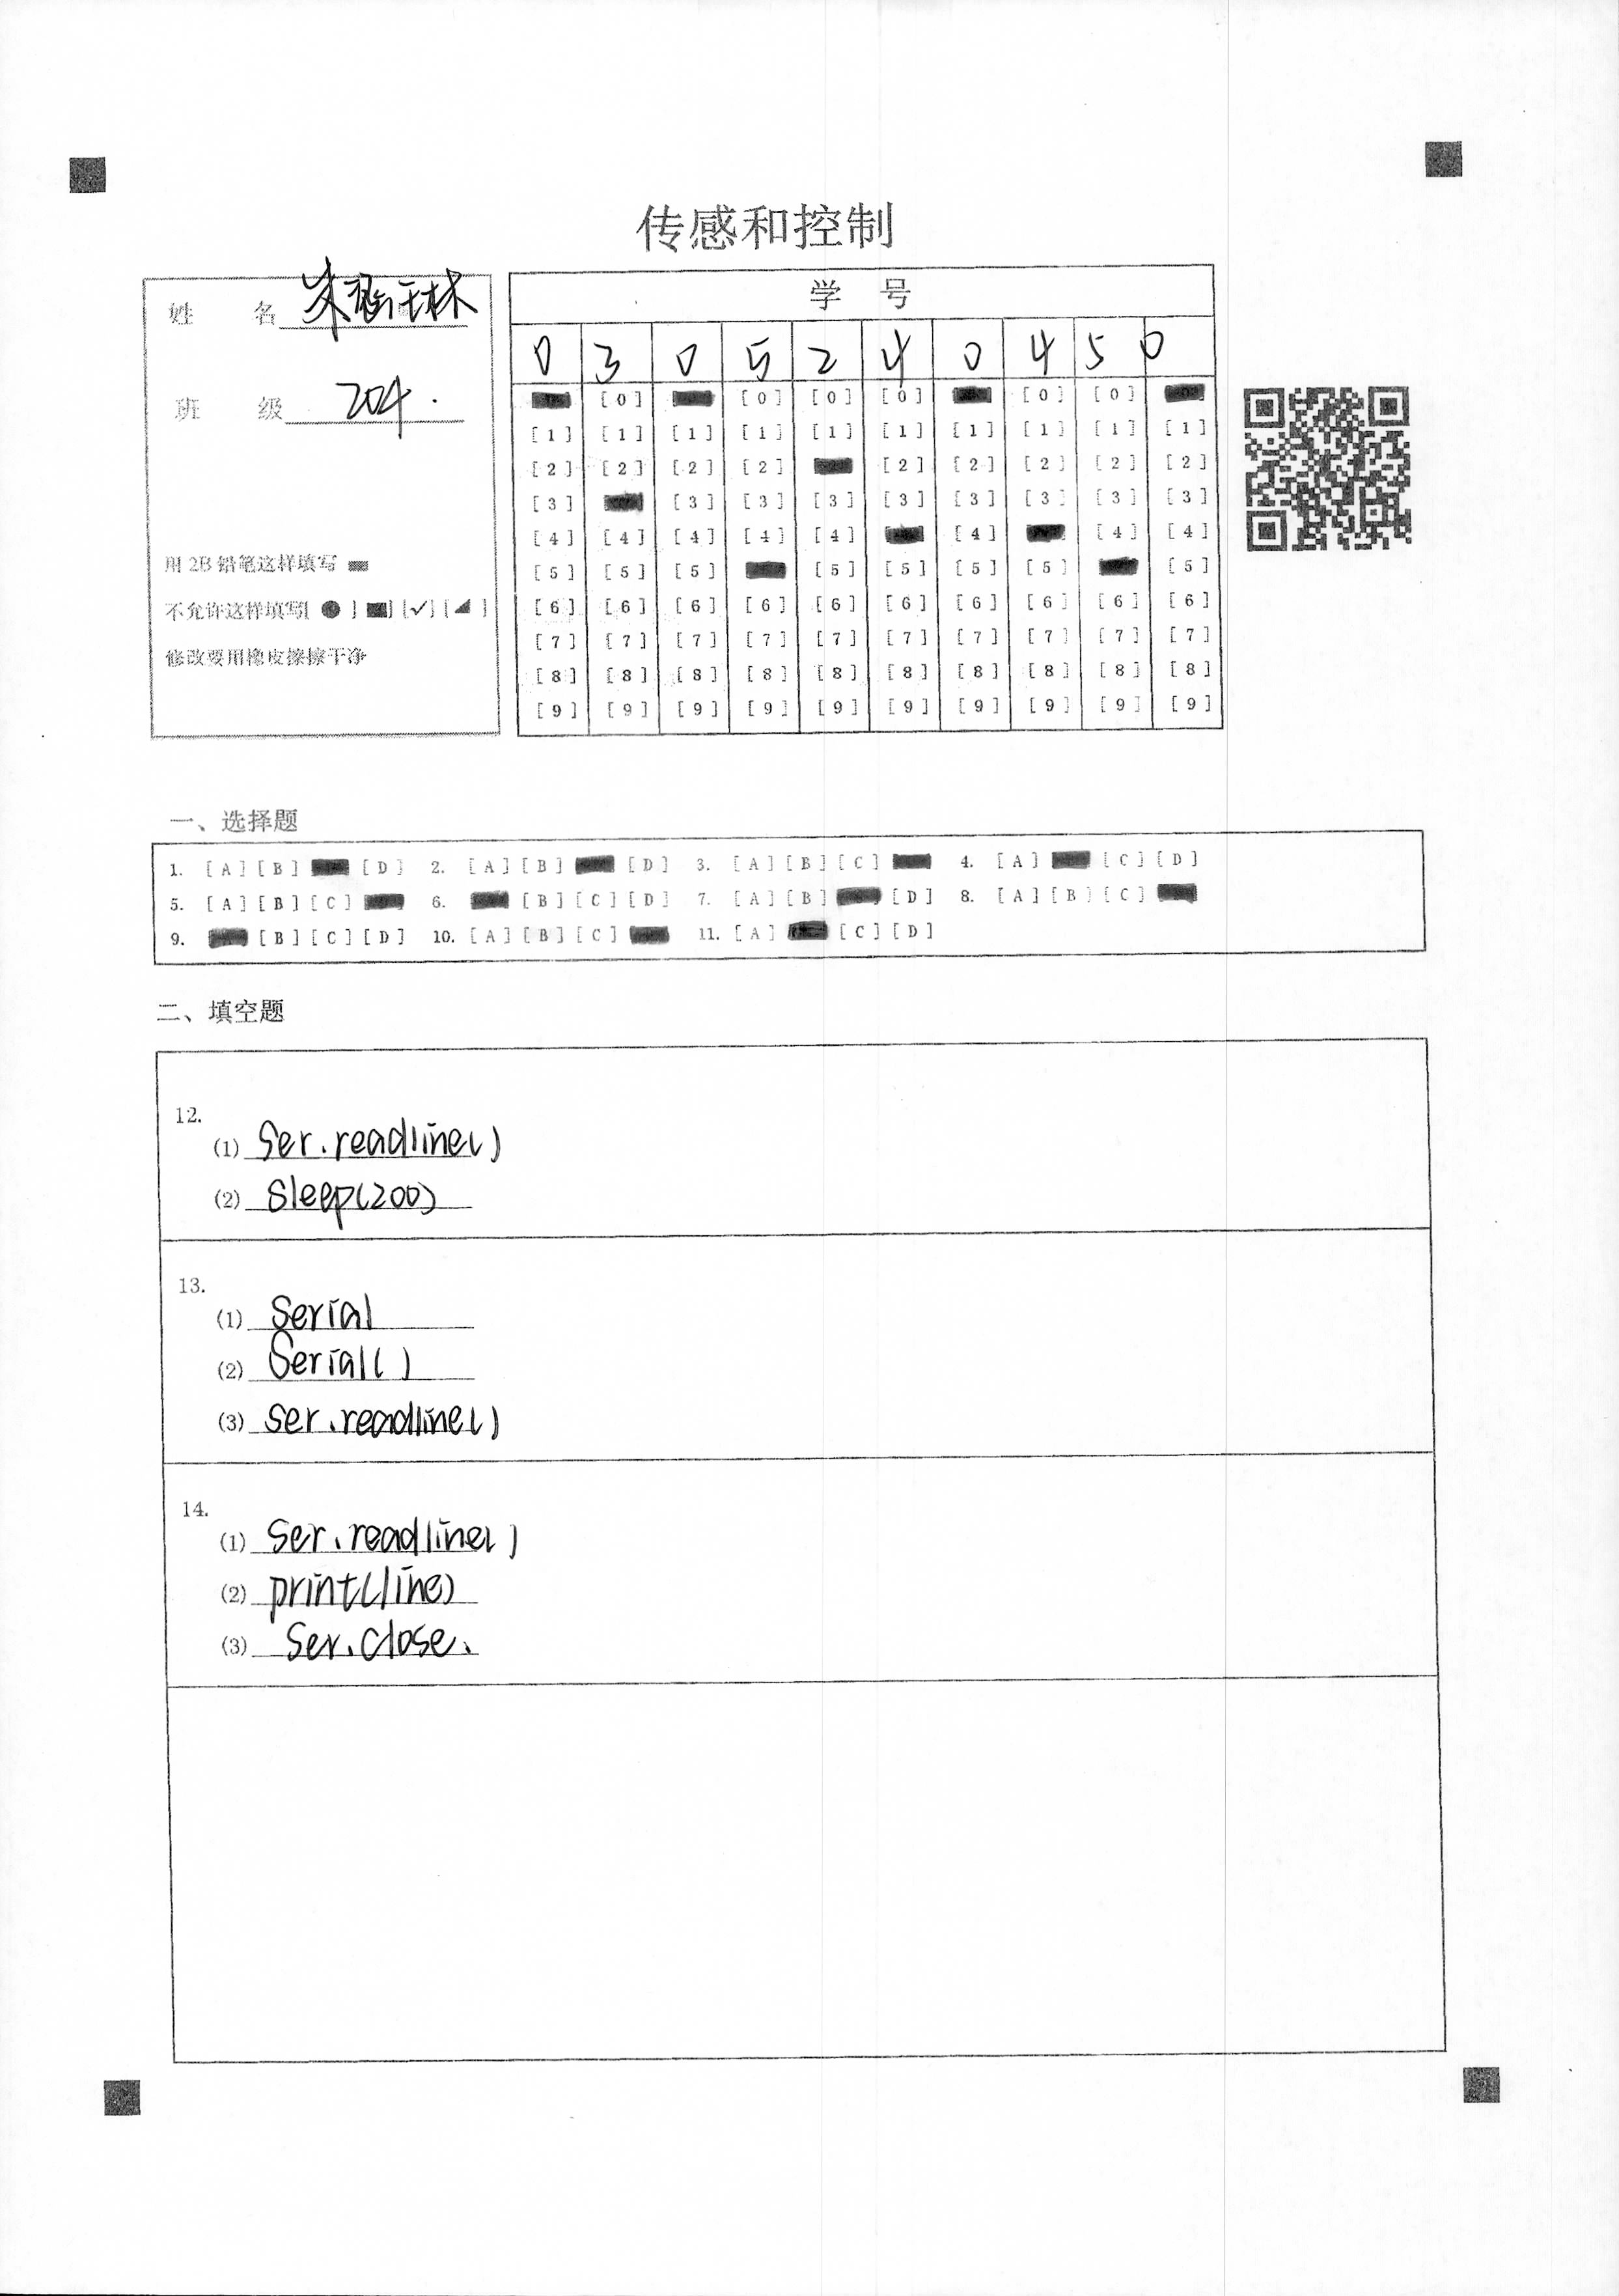 传感和控制
姓 名 朱
班 级 204.
用 2B 铅笔这样填写
不允许这样填写[ ● ] [■] [✓] [◢ ]
修改要用橡皮擦擦干净
学 号
0 3 0 5 2 4 0 4 5 0
[0] [0] [0] [0] [0] [0]
[1] [1] [1] [1] [1] [1] [1] [1] [1] [1]
[2] [2] [2] [2] [2] [2] [2] [2] [2]
[3] [3] [3] [3] [3] [3] [3] [3] [3]
[4] [4] [4] [4] [4] [4] [4] [4]
[5] [5] [5] [5] [5] [5] [5] [5]
[6] [6] [6] [6] [6] [6] [6] [6] [6] [6]
[7] [7] [7] [7] [7] [7] [7] [7] [7] [7]
[8] [8] [8] [8] [8] [8] [8] [8] [8] [8]
[9] [9] [9] [9] [9] [9] [9] [9] [9] [9]
一、选择题
1. [A] [B] [D] 2. [A] [B] [D] 3. [A] [B] [C] 4. [A] [C] [D]
5. [A] [B] [C] 6. [B] [C] [D] 7. [A] [B] [D] 8. [A] [B] [C]
9. [B] [C] [D] 10. [A] [B] [C] 11. [A] [C] [D]
二、填空题
12.
(1) Ser.readline()
(2) sleep(200)
13.
(1) serial
(2) Serial()
(3) ser.readline()
14.
(1) ser.readline()
(2) print(line)
(3) Ser.close.